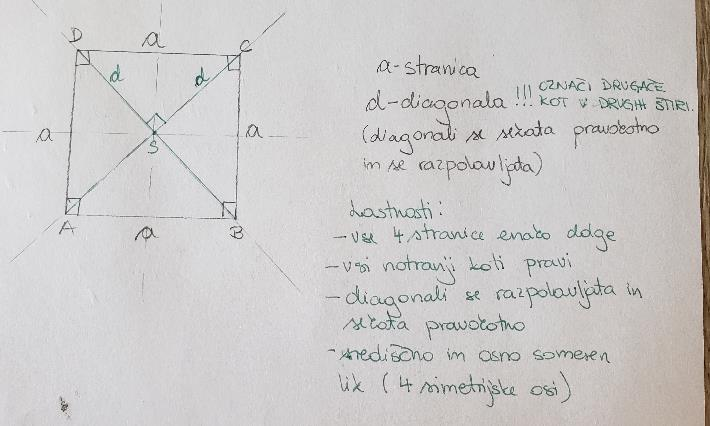 D a C
d d
a S a
A a B
a-stranica
d-diagonala !!! OZNAČI DRUGAČE
KOT V DRUGIH ŠTIRI.
(diagonali se sekata pravokotno
in se razpolavljata)
Lastnosti:
- vse 4 stranice enako dolge
- vsi notranji koti pravi
- diagonali se razpolavljata in
sekata pravokotno
- središčno in osno someren
lik (4 simetrijske osi)